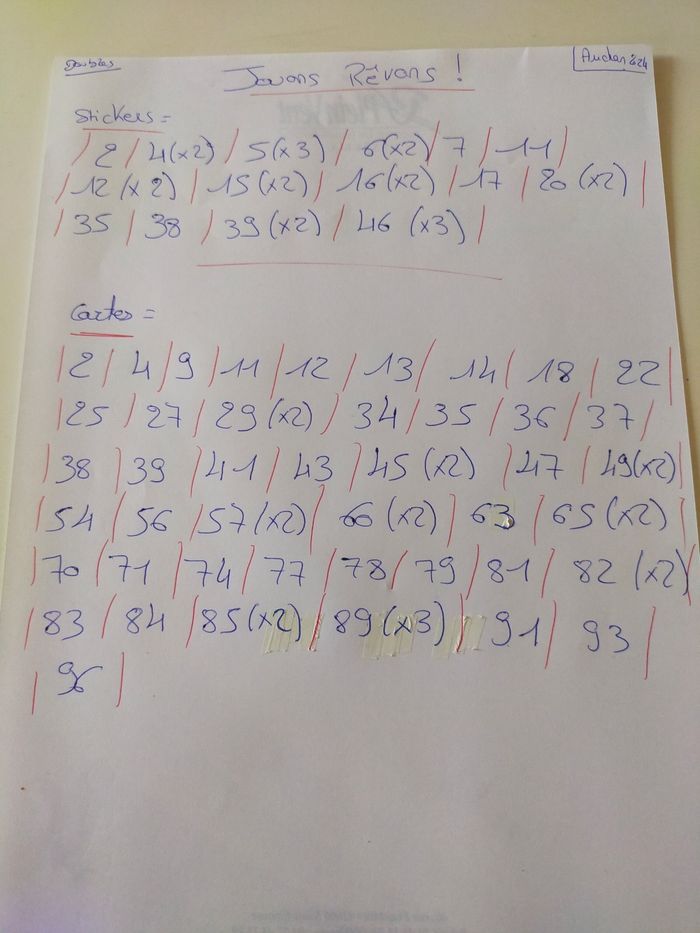 Doubles
Jouons Rêvons !
Auchan 2024
Stickers =
/ 2 / 4(x2) / 5(x3) / 6(x2) / 7 / 11 /
/ 12 (x2) / 15(x2) / 16(x2) / 17 / 20 (x2) /
/ 35 / 38 / 39(x2) / 46 (x3) /
Cartes =
/ 2 / 4 / 9 / 11 / 12 / 13 / 14 / 18 / 22 /
/ 25 / 27 / 29(x2) / 34 / 35 / 36 / 37 /
/ 38 / 39 / 41 / 43 / 45 (x2) / 47 / 49(x2) /
/ 54 / 56 / 57(x2) / 60 (x2) / 63 / 65 (x2) /
/ 70 / 71 / 74 / 77 / 78 / 79 / 81 / 82 (x2) /
/ 83 / 84 / 85(x2) / 89(x3) / 91 / 93 /
/ 96 /